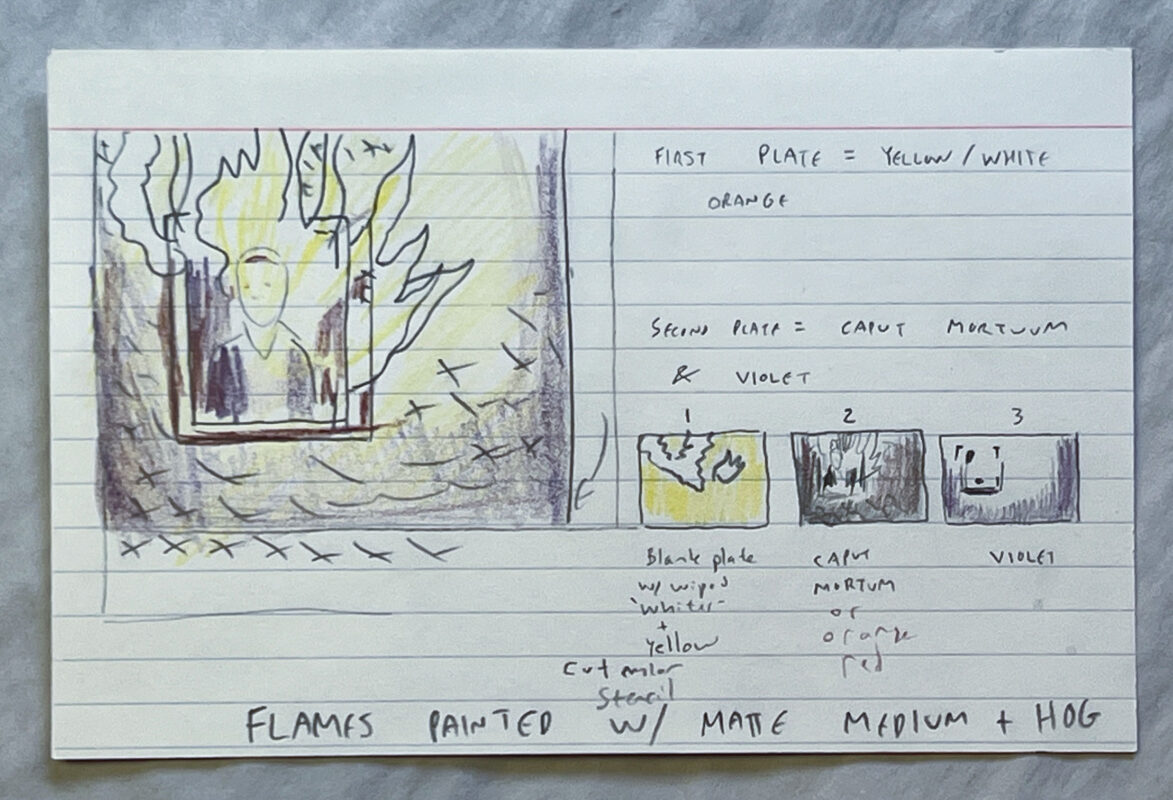 FIRST PLATE = YELLOW/WHITE
ORANGE
SECOND PLATE = CAPUT MORTUUM
& VIOLET
1 2 3
Blank plate
w/ wiped
"whites"
+
Yellow
Cut mylar
Stencil
CAPUT
MORTUM
or
orange
red
VIOLET
FLAMES PAINTED W/ MATTE MEDIUM + HOG